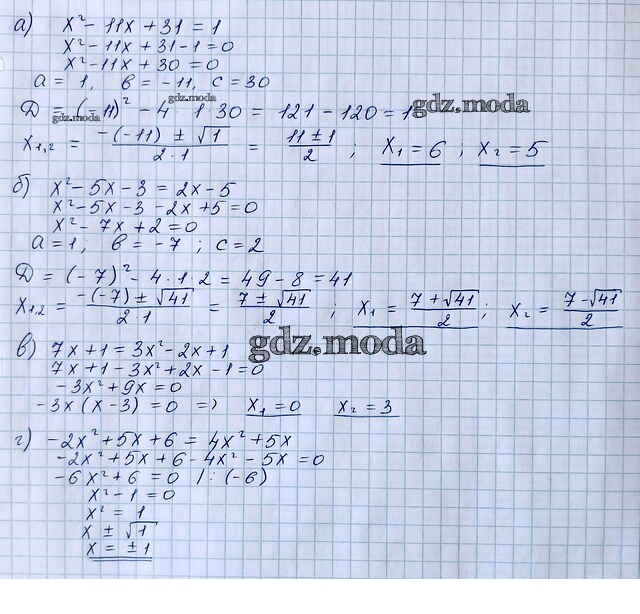 а) x² - 11x + 31 = 1
x² - 11x + 31 - 1 = 0
x² - 11x + 30 = 0
a = 1, b = -11, c = 30
gdz.moda
D = (-11)² - 4 · 1 · 30 = 121 - 120 = 1
gdz.moda
gdz.moda
x₁,₂ = (-(-11) ± √1)/(2·1) = (11 ± 1)/2 ; x₁ = 6 ; x₂ = 5
б) x² - 5x - 3 = 2x - 5
x² - 5x - 3 - 2x + 5 = 0
x² - 7x + 2 = 0
a = 1, b = -7 ; c = 2
D = (-7)² - 4 · 1 · 2 = 49 - 8 = 41
x₁,₂ = (-(-7) ± √41)/(2·1) = (7 ± √41)/2 ; x₁ = (7 + √41)/2 ; x₂ = (7 - √41)/2
в) 7x + 1 = 3x² - 2x + 1
gdz.moda
7x + 1 - 3x² + 2x - 1 = 0
-3x² + 9x = 0
-3x (x - 3) = 0 => x₁ = 0 x₂ = 3
г) -2x² + 5x + 6 = 4x² + 5x
-2x² + 5x + 6 - 4x² - 5x = 0
-6x² + 6 = 0 /: (-6)
x² - 1 = 0
x² = 1
x ± √1
x = ±1